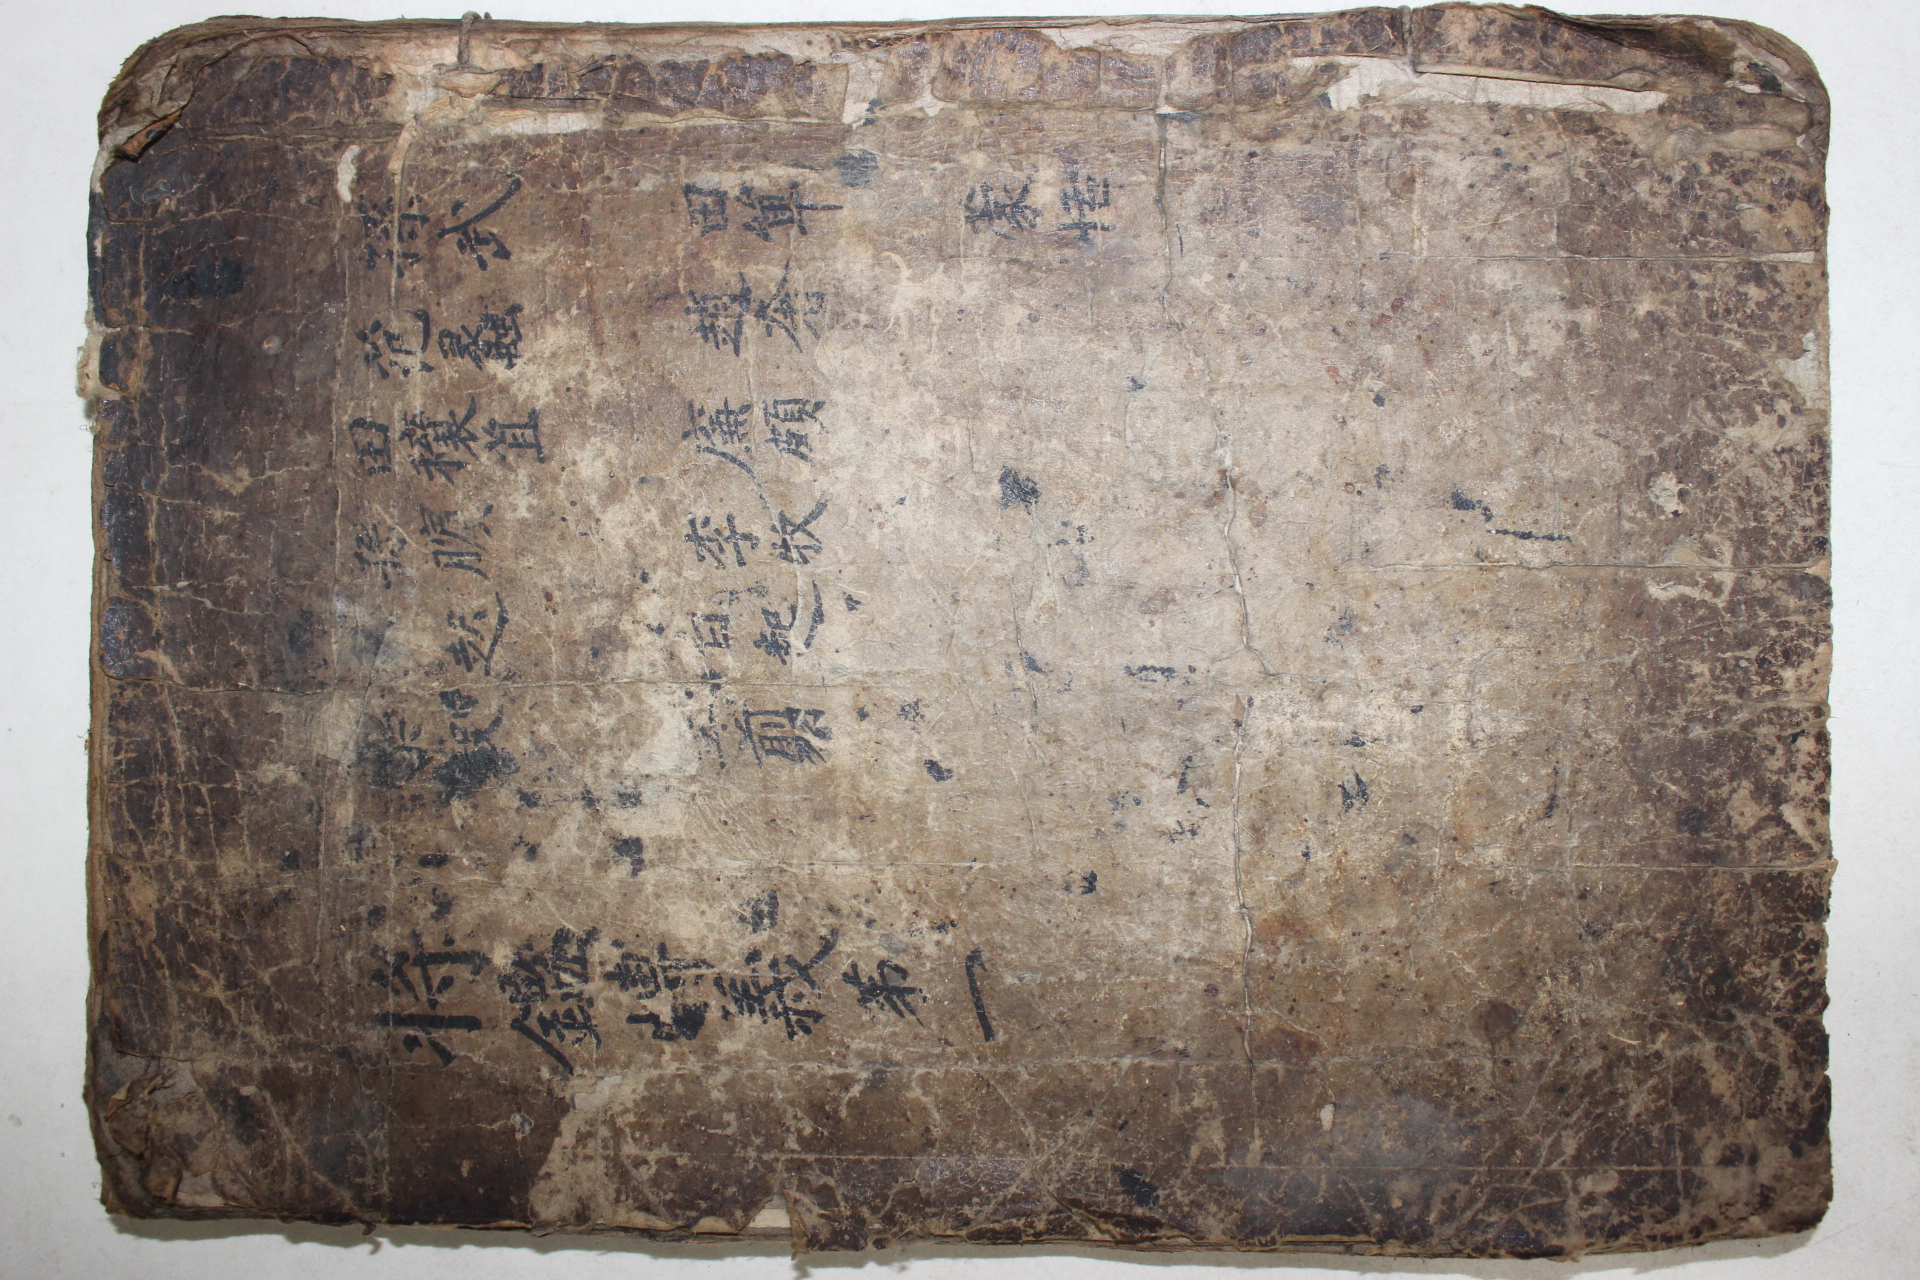 孫武 田單 蒙恬
范蠡 趙奢
田穰苴 廉頗
孫臏 李牧
起 白起
樂毅 王翦
将鑑愽義第一